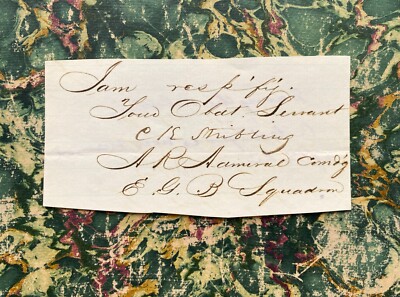 I am respf'y.
Your Obdt. Servant
C K Stribling
A R Admiral Comd'g
E. G. B Squadron